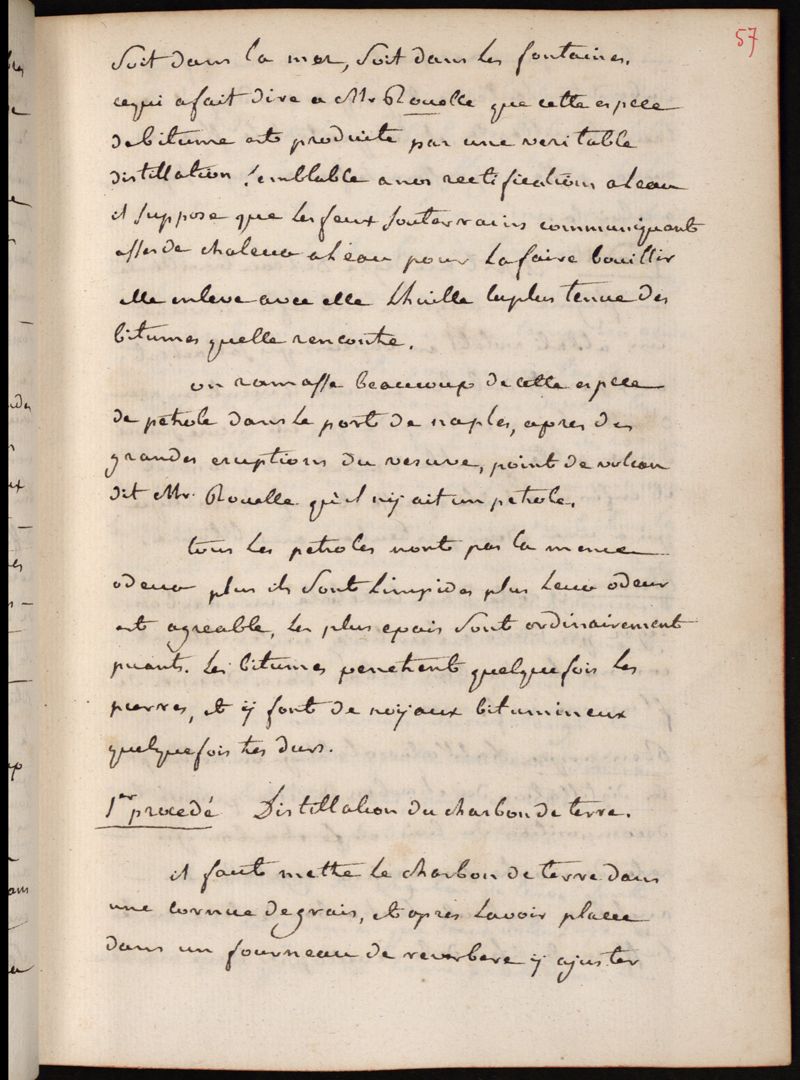 57
soit dans la mer, soit dans les fontaines.
cequi afait dire a Mr Rouelle que cette espece
debitume est produite par une veritable
distillation semblable anos rectifications aleau
il suppose que les feux souterrains communiquant
assés de chaleur aLéau pour Lafaire bouillir
elle enleve avec elle Lhuille laplus tenue des
bitumes quelle rencontre.
on ramasse beaucoup de cette espece
de petrole dans Le port de naples, apres des
grandes eruptions du vesuve, point de volcan
dit Mr. Rouelle qu'il nÿ ait un petrole.
tous Les petroles nont pas la meme
odeur plus ils sont Limpides plus Leur odeur
est agreable, Les plus epais sont ordinairement
puants. Les bitumes penetrent quelquefois les
pierres, et ÿ font de noÿaux bitumineux
quelquefois tres durs.
1er procedé Distillation du charbon de terre.
il faut mettre Le charbon de terre dans
une cornue degrais, et apres Lavoir placée
dans un fourneau de reverbere ÿ ajuster